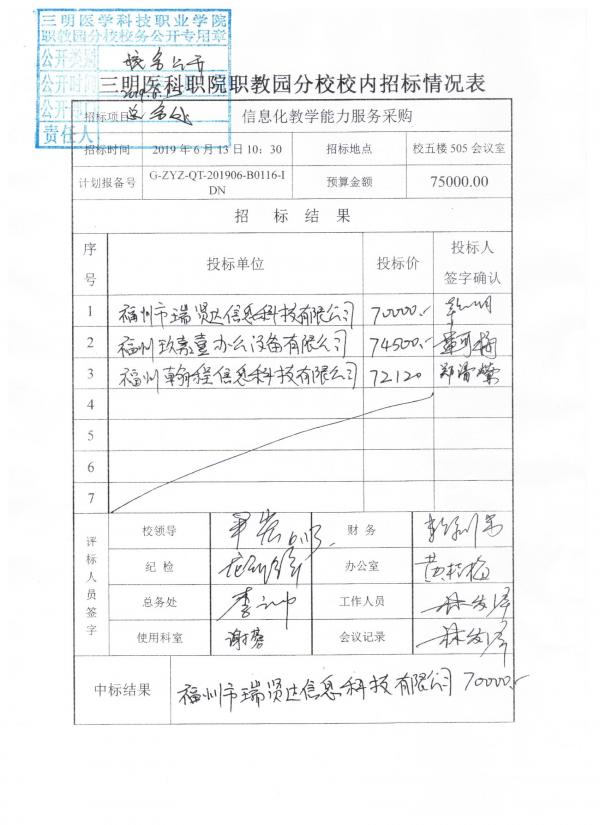 三明医学科技职业学院
职教园分校校务公开专用章
公开类别 校务公开
公开时间
公开
责任人 总务处
三明医科职院职教园分校校内招标情况表
招标项目 信息化教学能力服务采购
招标时间 2019年6月13日10：30 招标地点 校五楼505会议室
计划报备号 G-ZYZ-QT-201906-B0116-I
DN 预算金额 75000.00
招 标 结 果
序号 投标单位 投标价 投标人
签字确认
1 福州市瑞贤达信息科技有限公司 70000.-
2 福州玖嘉喜办公设备有限公司 74500.-
3 福州翰程信息科技有限公司 72120
4
5
6
7
评标人员签字
校领导 6.13. 财 务
纪 检 办公室 黄桂梅
总务处 工作人员 林发泽
使用科室 谢蓉 会议记录 林发泽
中标结果 福州市瑞贤达信息科技有限公司 70000.-